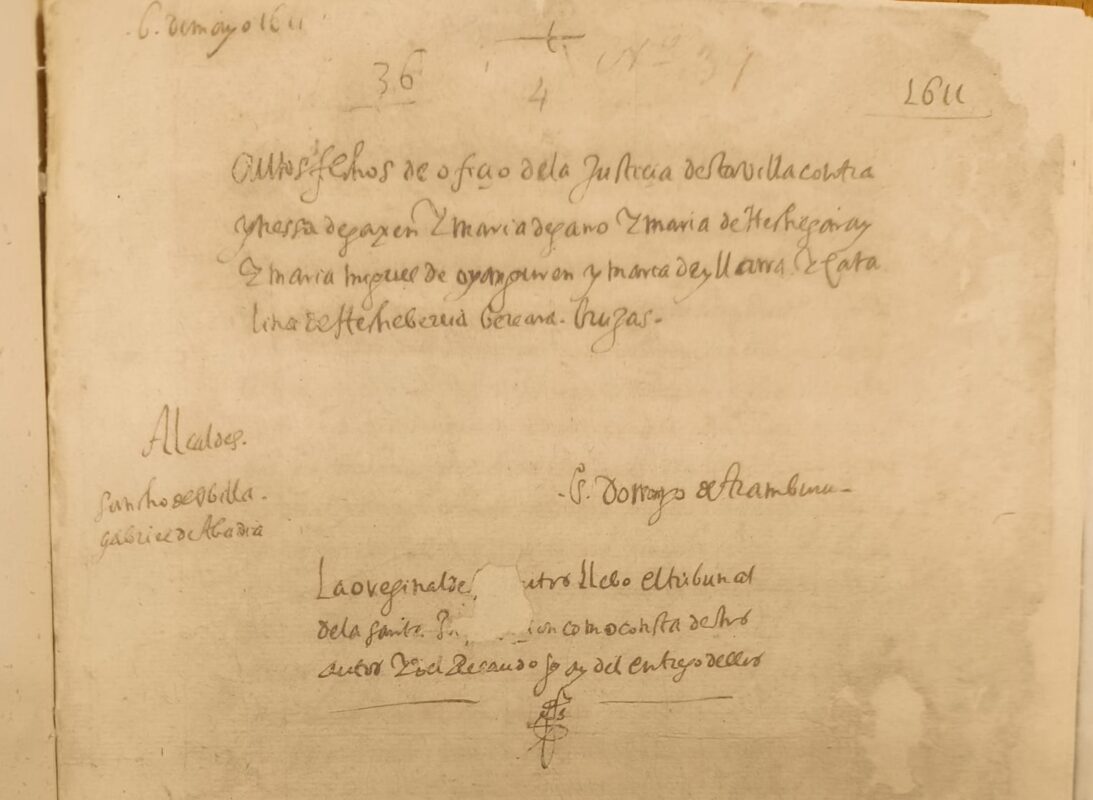 6. de mayo 1611
36
4
Nº 31
1611
Autos fechos de ofiçio de la Justiçia desta villa contra
ynessa de gaxen Y maria de gano Y maria de Hechegaray
Y maria miguel de oyanguren y maria de yllarra Y Cata
lina de Hecheberria bereara. bruxas.
Alcaldes.
Sancho de Ubilla.
gabriel de Abadia
S. Domingo de Aramburu
La oreginal de utro llebo el tribunal
de la santa ion como consta destro
autor Y del Recaudo So ay del entrego dello